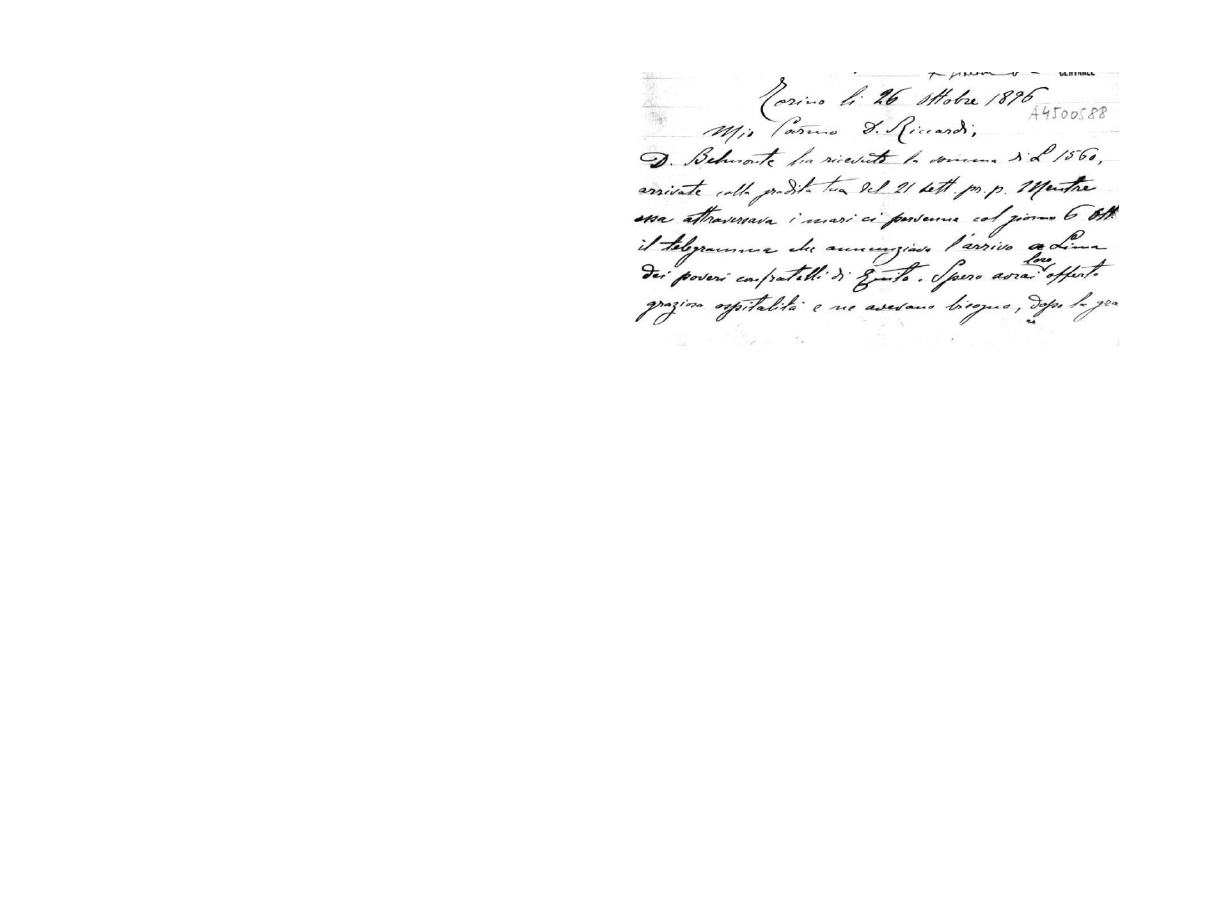 CENTRALE
Torino li 26 ottobre 1896
A4500588
Mio Carmo D. Riccardi,
D. Belmonte ha ricevuto la somma di £ 1560,
arrivate colla gradita tua del 21 sett. pr. p. Mentre
essa attraversava i mari ci pervenne col giorno 6 Ott.
il telegramma che annunziava l'arrivo a Lima
dei poveri confratelli di Quito. Spero avrai loro offerto
graziosa ospitalità e ne avevano bisogno, dopo la gra